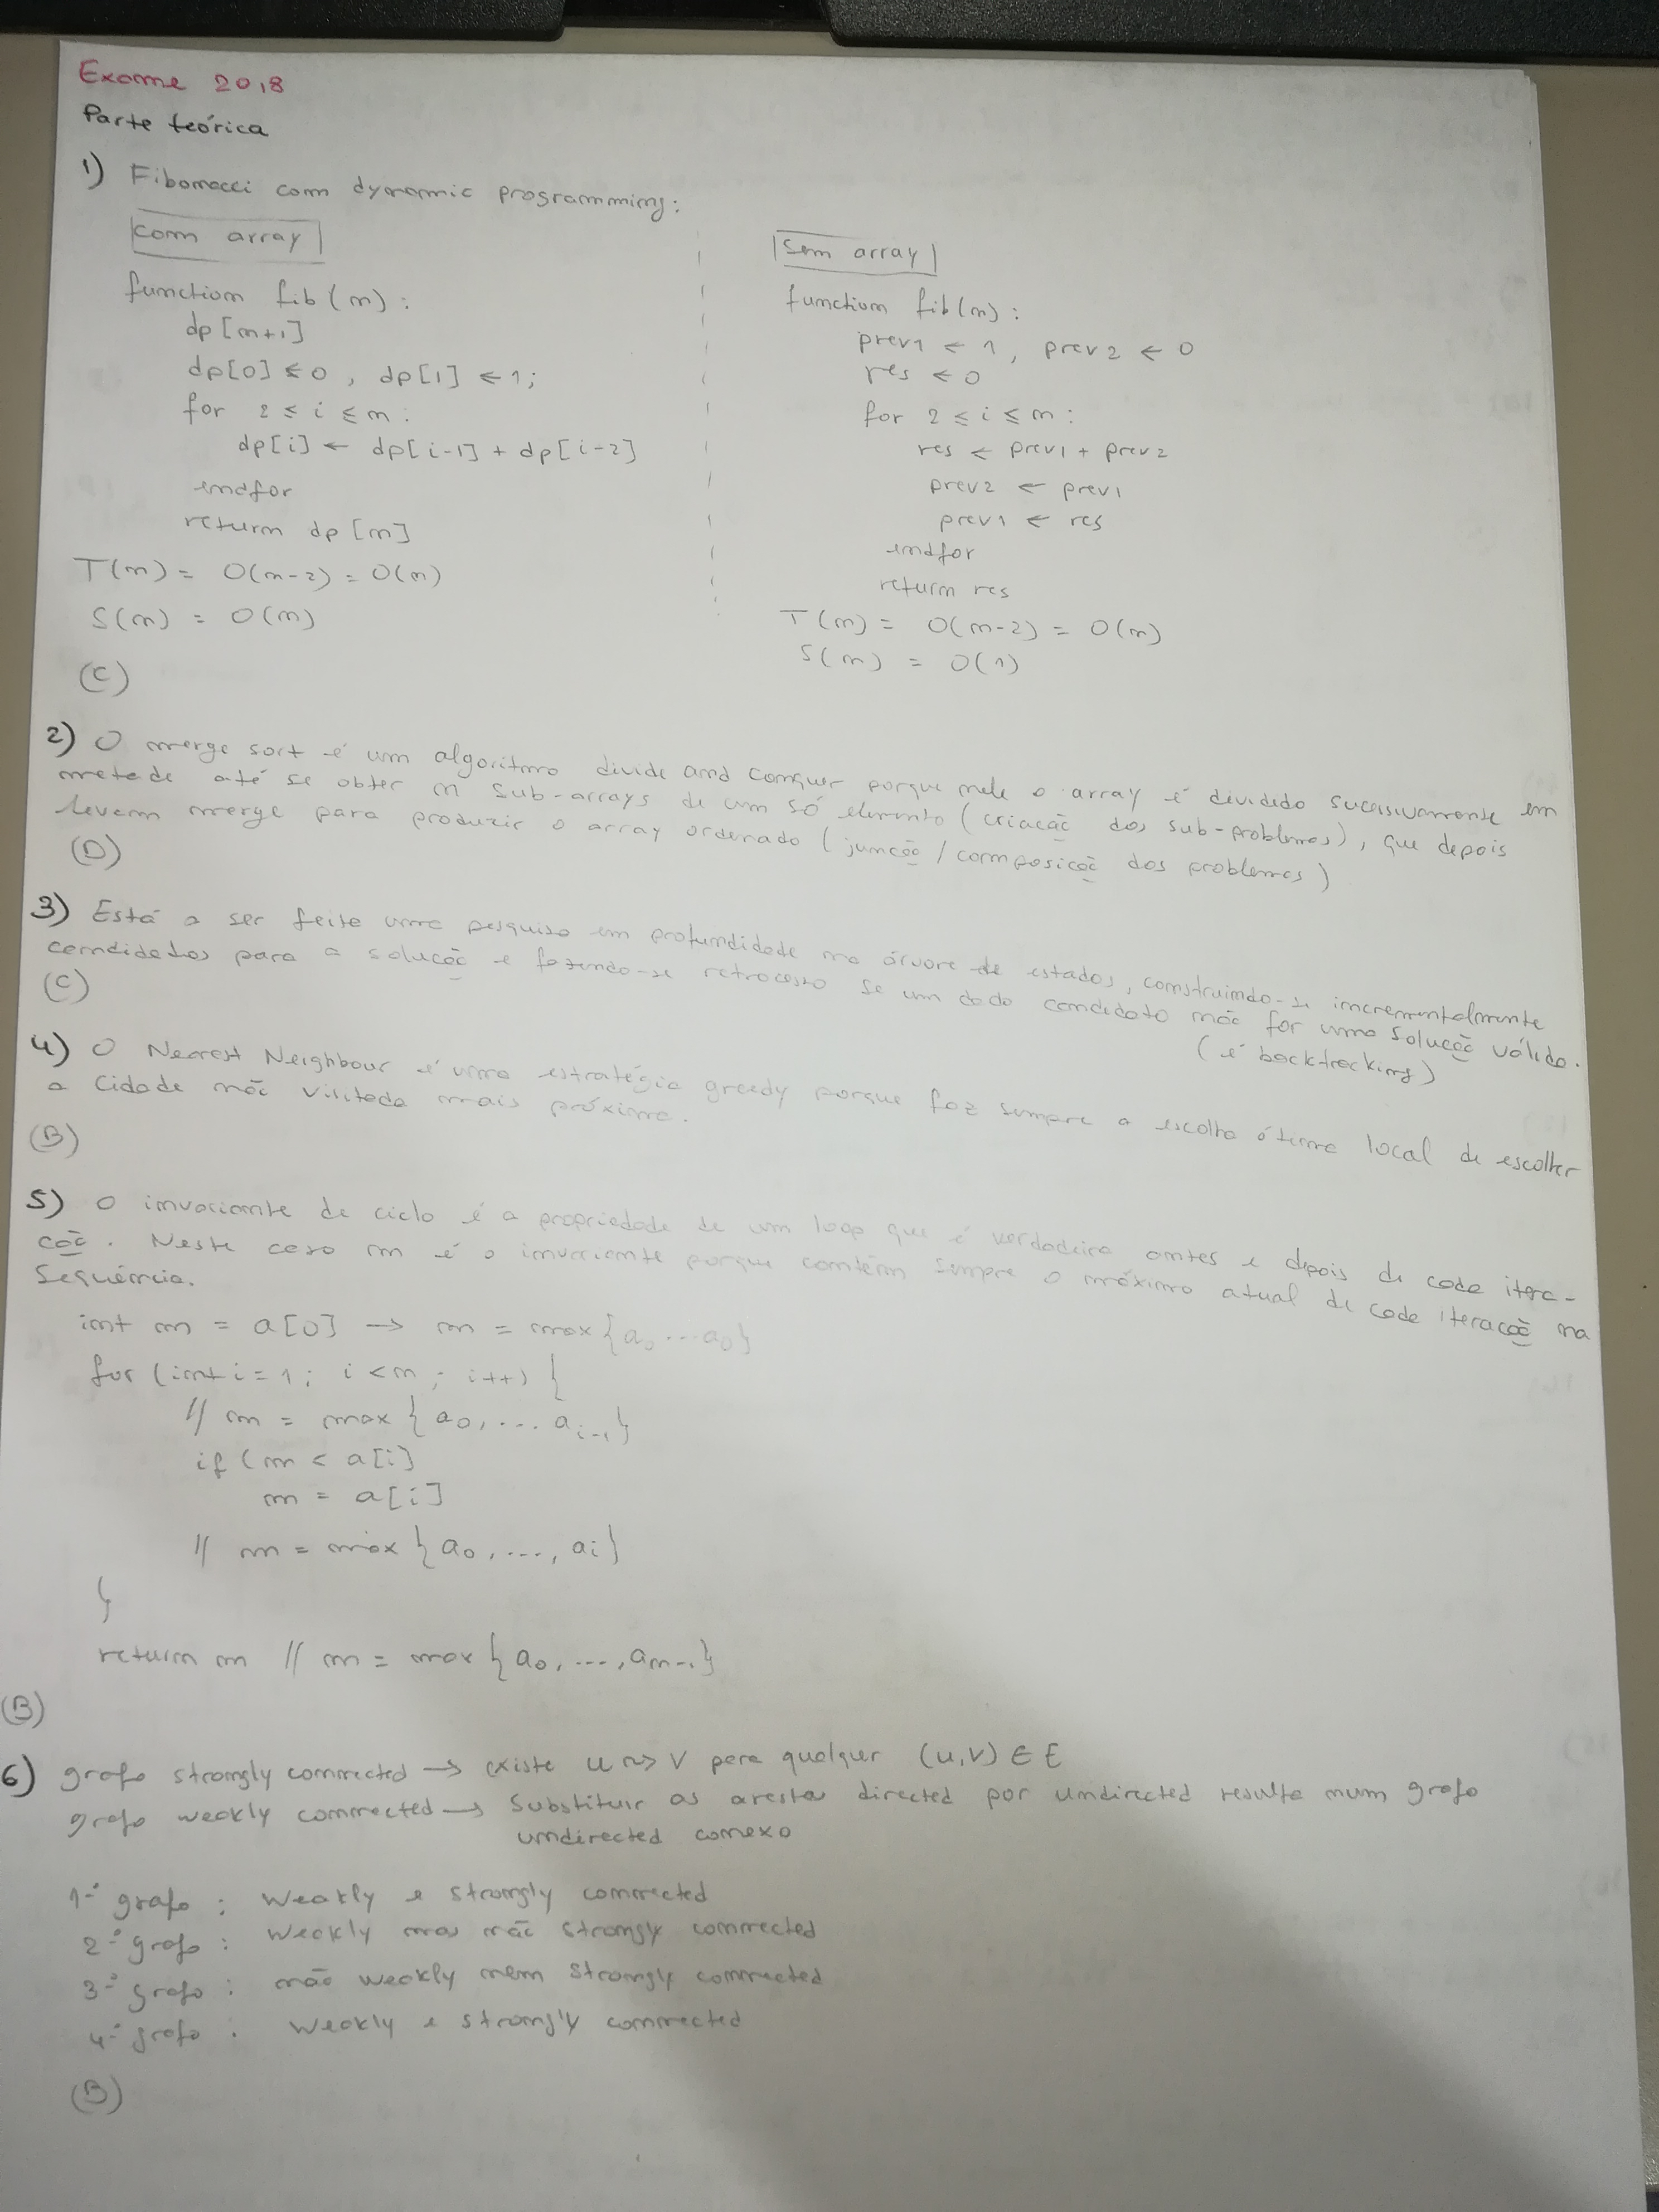 Exame 2018
Parte teórica
1) Fibonacci com dynamic programming:
com array
function fib(n):
dp[n+1]
dp[0] ← 0, dp[1] ← 1;
for 2 ≤ i ≤ n:
dp[i] ← dp[i-1] + dp[i-2]
endfor
return dp[n]
T(n) = O(n-2) = O(n)
S(n) = O(n)
(C)
sem array
function fib(n):
prev1 ← 1, prev2 ← 0
res ← 0
for 2 ≤ i ≤ n:
res ← prev1 + prev2
prev2 ← prev1
prev1 ← res
endfor
return res
T(n) = O(n-2) = O(n)
S(n) = O(1)
2) O merge sort é um algoritmo divide and conquer porque nele o array é dividido sucessivamente em
metade até se obter n sub-arrays de um só elemento (criação dos sub-problemas), que depois
levam merge para produzir o array ordenado (junção / composição dos problemas)
(D)
3) Está a ser feita uma pesquisa em profundidade na árvore de estados, construindo-se incrementalmente
candidatos para a solução e fazendo-se retrocesso se um dado candidato não for uma solução válida.
(é backtracking)
(C)
4) O Nearest Neighbour é uma estratégia greedy porque faz sempre a escolha ótima local de escolher
a cidade não visitada mais próxima.
(B)
5) O invariante de ciclo é a propriedade de um loop que é verdadeira antes e depois de cada itera-
ção. Neste caso m é o invariante porque contém sempre o máximo atual de cada iteração na
sequência.
int m = a[0] → m = max{a0...a0}
for (int i = 1; i < n; i++) {
// m = max{a0, ... ai-1}
if (m < a[i]
m = a[i]
// m = max{a0, ..., ai}
}
return m // m = max{a0, ..., an-1}
(B)
6) grafo strongly connected → existe u ~> v para qualquer (u,v) ∈ E
grafo weakly connected → Substituir as arestas directed por undirected resulta num grafo
undirected conexo
1º grafo: weakly e strongly connected
2º grafo: weakly mas não strongly connected
3º grafo: não weakly nem strongly connected
4º grafo: weakly e strongly connected
(B)